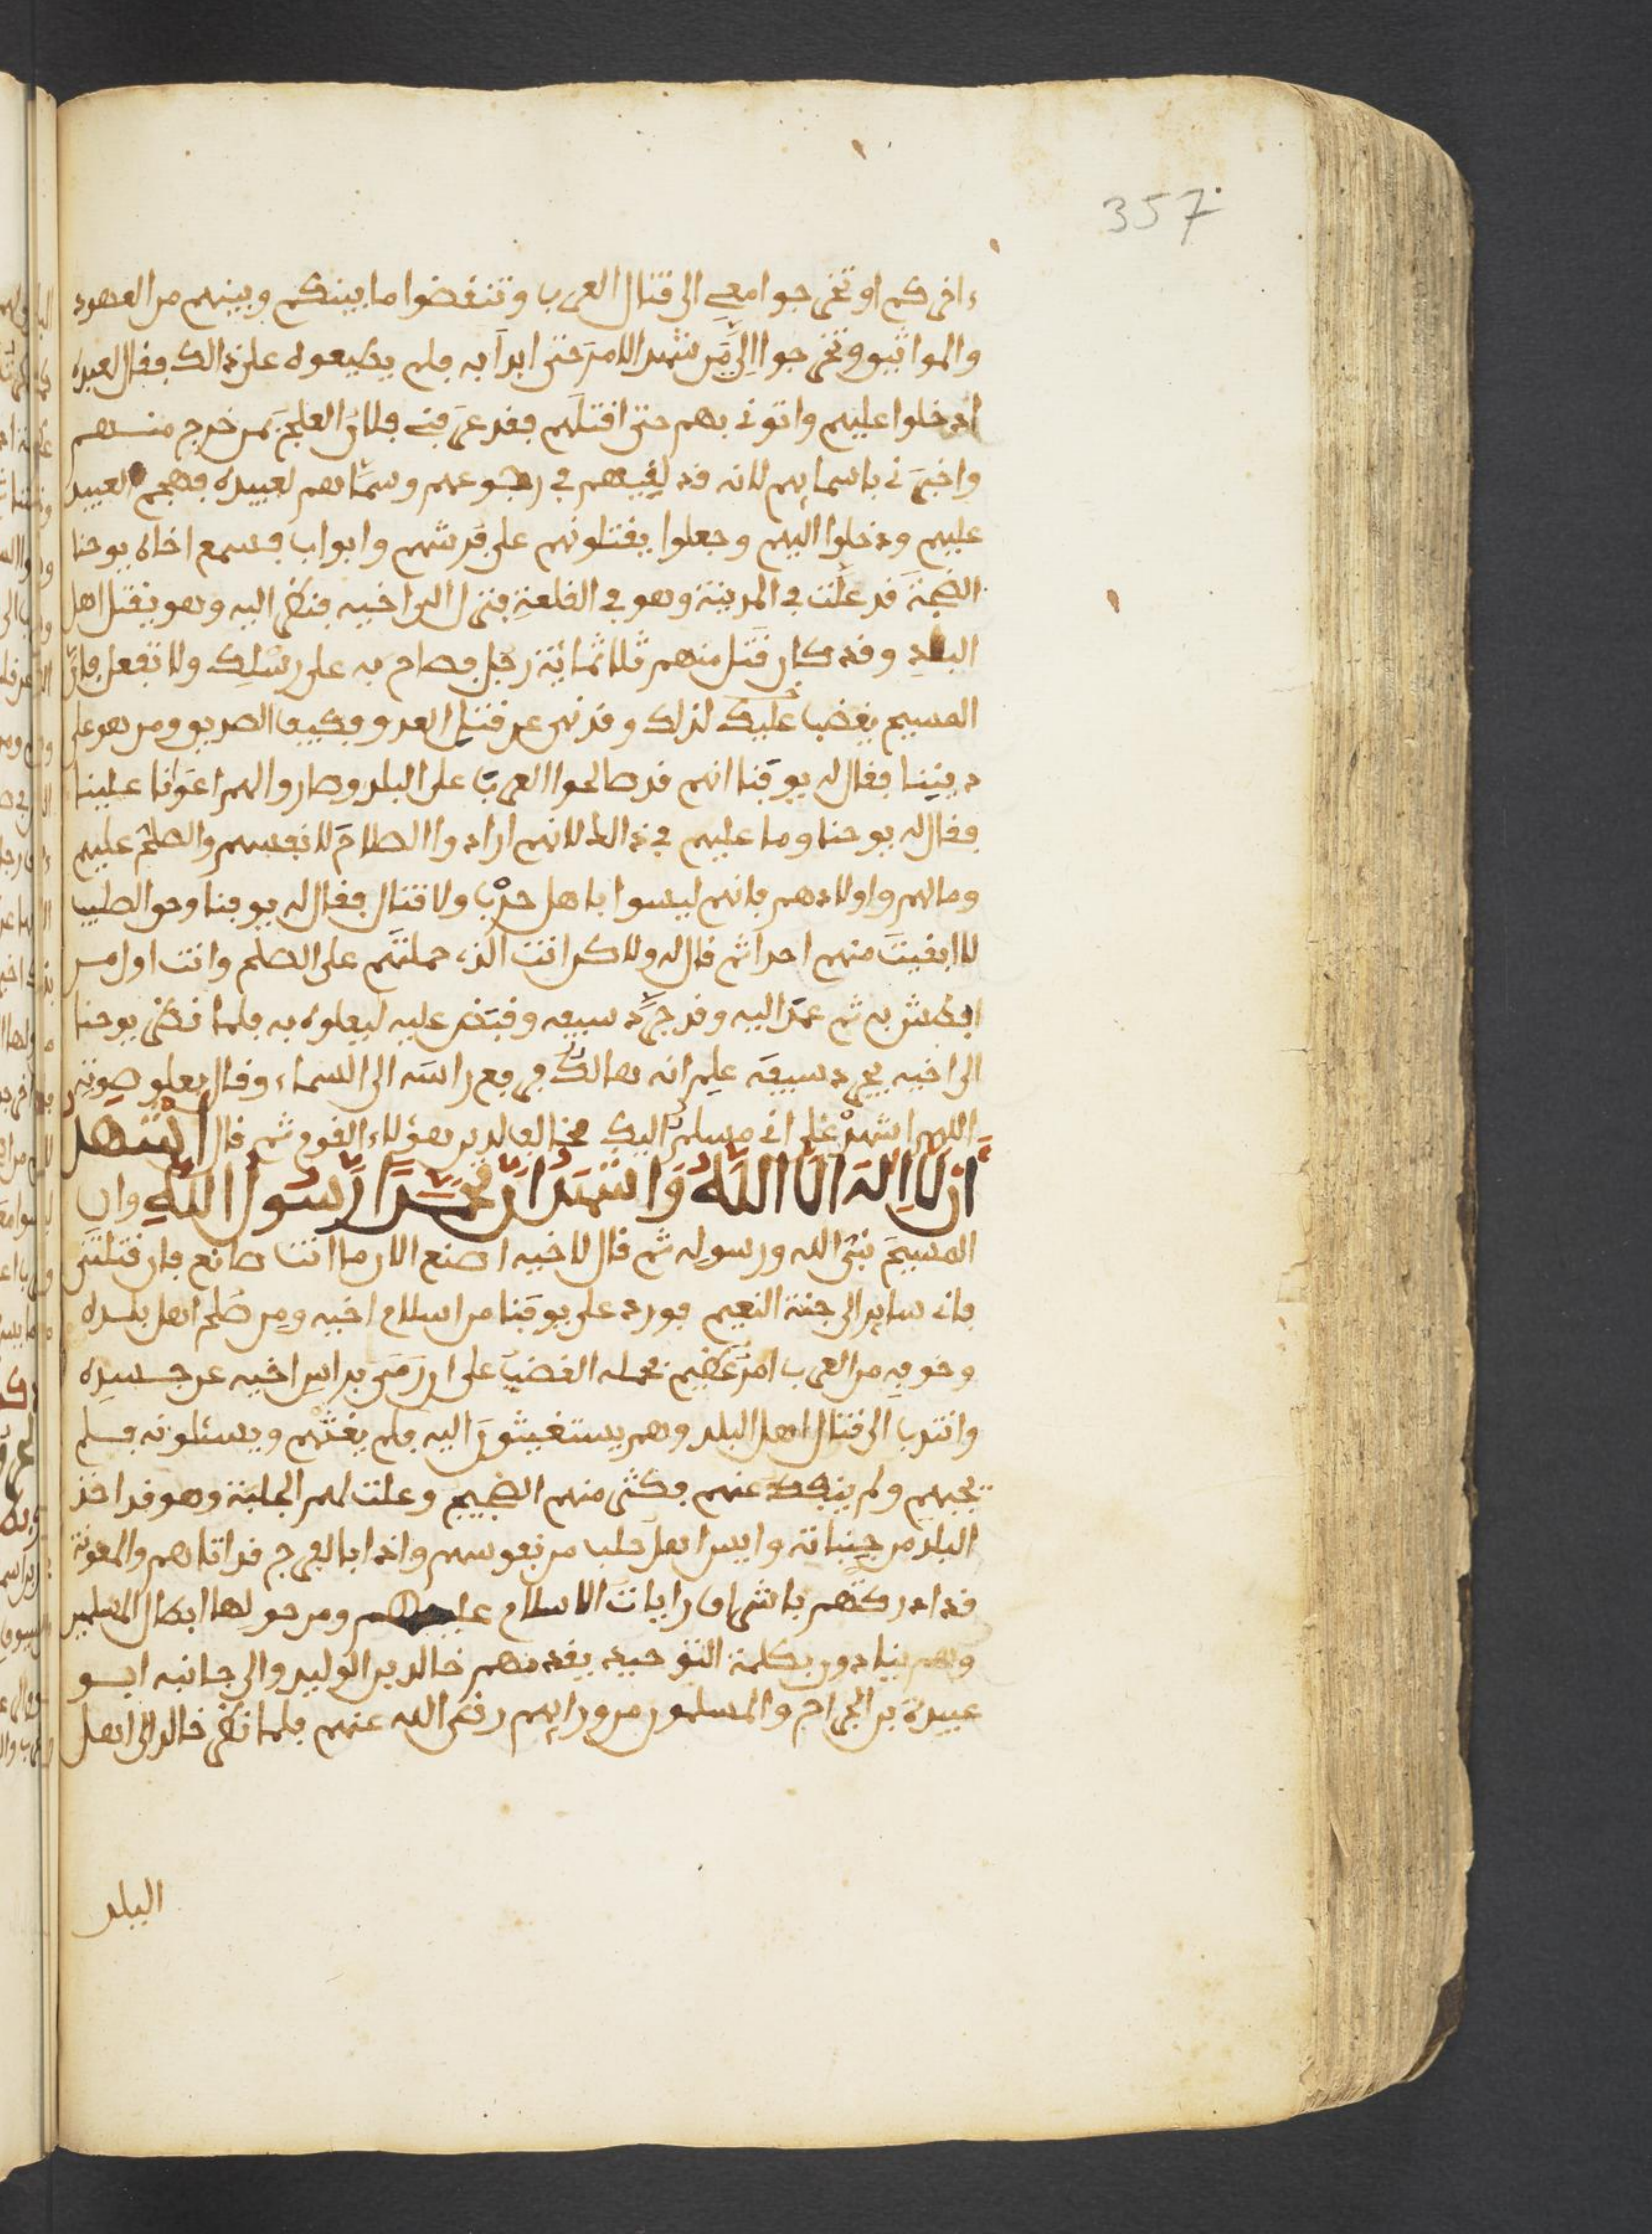 357
ءاخركم او تخرجوا معي الى قتال العرب وتنقضوا ما بينكم وبينهم من العهود
والمواثيق وتخرجوا الي من شهد الامر حتى ابدا به فلم يطيعوه على ذالك فقال لعبيده
ادخلوا عليهم واتوني بهم حتى اقتلهم فقد عرفني فلان العلج بمن خرج منهم
واخبرني باسمايهم لانه قد لقيهم في رجوعهم وسماهم لعبيده فهجم العبيد
عليهم ودخلوا اليهم وجعلوا يقتلونهم على فرشهم وابواب فسمع اخاه يوحنا
الضجة قد علت في المدينة وهو في القلعة فنزل الى اخيه فنظر اليه وهو يقتل اهل
البلد وقد كان قتل منهم ثلاثمائة رجل فصاح به على رسلك ولا تفعل فان
المسيح يغضب عليك لذلك وقد نهى عن قتل العدو فكيف الصديق ومن هو على
ديننا فقال له يوقنا انهم قد صالحوا العرب على البلد وصاروا لهم اعوانا علينا
فقال له يوحنا وما عليهم في ذالك لانهم ارادوا الصلاح لانفسهم والصلح عليهم
ومالهم واولادهم فانهم ليسوا باهل حرب ولا قتال فقال له يوقنا وحق الصليب
لا ابقيت منهم احدا ثم قال له ولاكن انت الذي حملتهم على الصلح وانت اول من
ابطش به ثم عمد اليه وقد جرد سيفه وقبض عليه ليعلوه به فلما نظر يوحنا
الى اخيه يجرد سيفه علم انه هالك فرفع راسه الى السماء وقال يعلو صوته
اللهم اشهد علي اني مسلم اليك مخالف لدين هؤلاء القوم ثم قال اشهد
ان لا اله الا الله واشهد ان محمدا رسول الله وان
المسيح نبي الله ورسوله ثم قال لاخيه اصنع الان ما انت صانع فان قتلتني
فاني ساير الى جنة النعيم فورد على يوقنا من اسلام اخيه ومن صلح اهل بلده
وخوفه من العرب امر عظيم فحمله الغضب على ان رمى براس اخيه عن جسده
وانتدب الى قتال اهل البلد وهم يستغيثون اليه فلم يغثهم ويسئلونه فلم
يجبهم ولم ينفك عنهم فكثر منهم الضجيج وعلت لهم الجلبة وهو قد اخذ
البلد من جنباته وايس اهل حلب من نفوسهم واذا بالفرج قد اتاهم والمعونة
قد ادركتهم باشراف رايات الاسلام عليهم ومن حولها ابطال المسلمين
وهم ينادون بكلمة التوحيد يقدمهم خالد بن الوليد والى جانبه ابو
عبيدة بن الجراح والمسلمون من ورايهم رضى الله عنهم فلما نظر خالد الى اهل
البلد